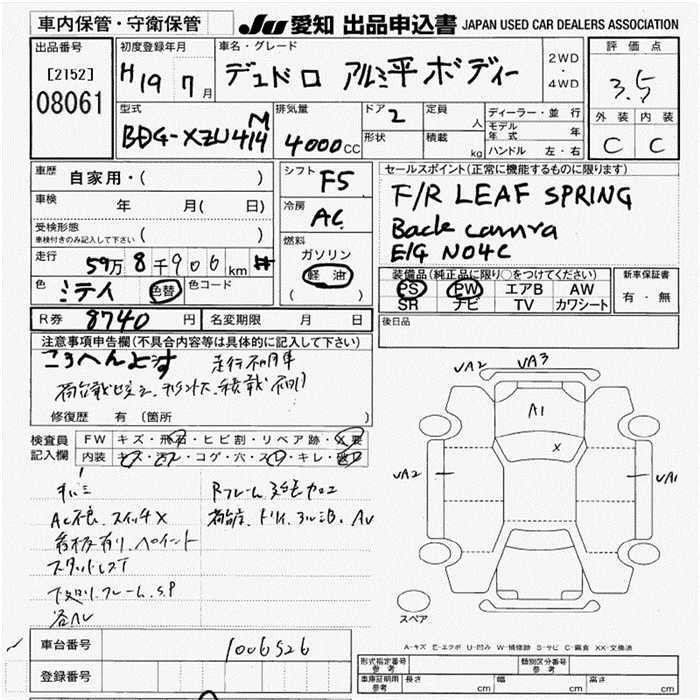 車内保管・守衛保管
JU 愛知 出品申込書 JAPAN USED CAR DEALERS ASSOCIATION
出品番号
[2152]
08061
初度登録年月
H19 7月
車名・グレード
デュトロ アルミ平ボディー
2WD
・
4WD
評価点
3.5
外装 内装
C C
型式
BDG-XZU414M
排気量
4000cc
ドア 2
形状
定員 人
積載 kg
ディーラー・並行
モデル年式 年
ハンドル 左・右
車歴 自家用・( )
車検 年 月( 日)
受検形態
車検付きのみ記入して下さい ( )
走行 59万8千906km #
色 色替 色コード
シフト F5
冷房 AC
燃料
ガソリン
軽油
( )
セールスポイント(正常に機能するものに限ります)
F/R LEAF SPRING
Back camra
E/G N04C
装備品(純正品に限り○をつけてください)
PS PW エアB AW
SR ナビ TV カワシート
新車保証書
有・無
後日品
R券 8740円 名変期限 月 日
注意事項申告欄(不具合内容等は具体的に記入して下さい)
修復歴 有 (箇所 )
検査員
記入欄
FW キズ・飛石・ヒビ割・リペア跡・X要
内装 キズ・汚レ・コゲ・穴・スレ・キレ・破レ
AC不良、スイッチX
看板有り、ペイント
スタッドレスT
下廻り、フレーム、S.P
各AU
VA2 VA3
A1
X
VA2
VA1
スペア
A-キズ E-エクボ U-凹み W-補修跡 S-サビ C-腐食 XX-交換済
車台番号 1006526
登録番号
形式指定番号
参考
類別区分番号
参考
車庫証明用
参考
長さ cm 幅 cm 高さ cm